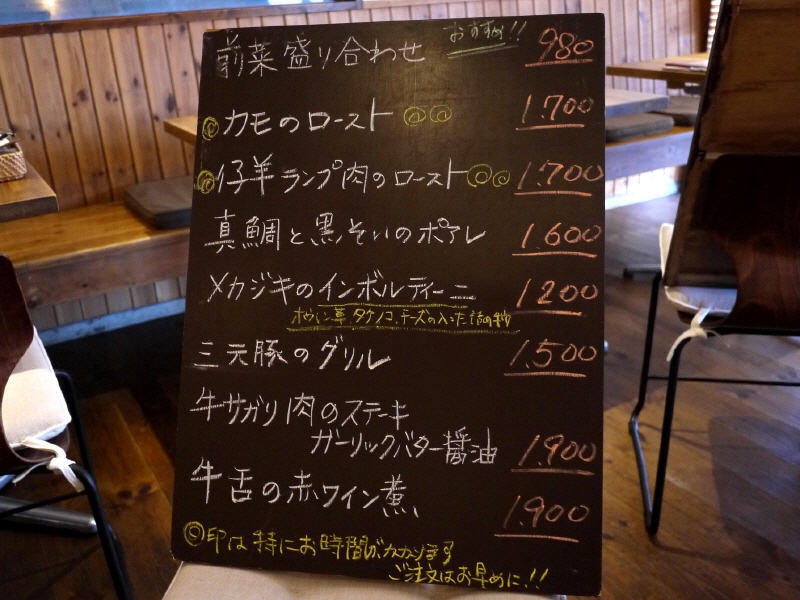 前菜盛り合わせ おすすめ!! 980
◎カモのロースト ◎◎ 1.700
◎仔羊ランプ肉のロースト◎◎ 1.700
真鯛と黒そいのポアレ 1.600
メカジキのインボルティーニ 1200
ホウレン草 タケノコ、チーズの入った
三元豚のグリル 1.500
牛サガリ肉のステーキ
ガーリックバター醤油 1.900
牛舌の赤ワイン煮 1.900
◎印は特にお時間がかかります
ご注文はお早めに!!